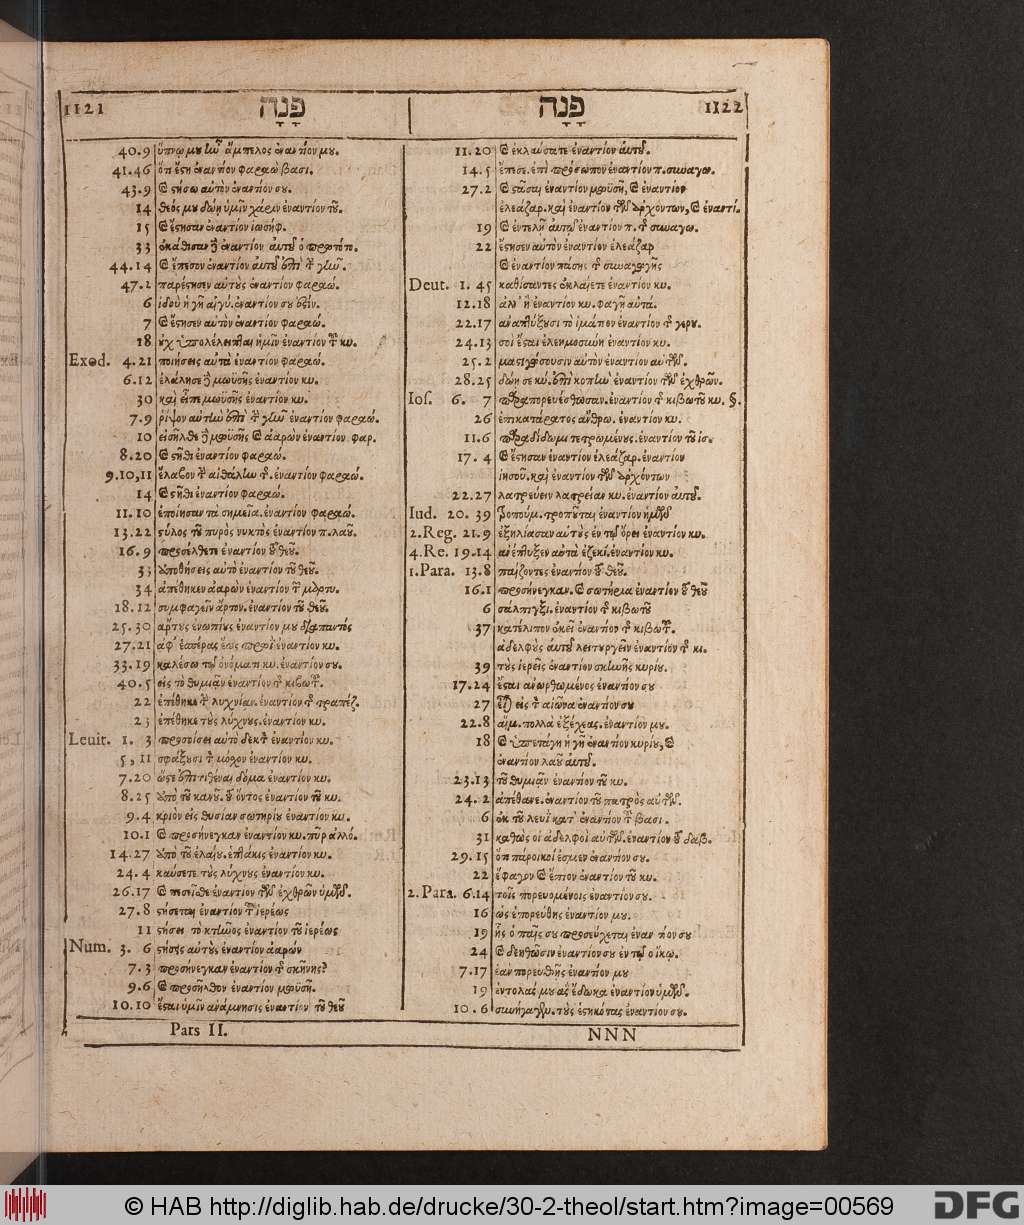 1121 פָּנָה
40.9 ὕπνῳ μου ἄμπελος ἐναντίον μου.
41.46 ὅτι ἔστη ἐναντίον φαραὼ βασι.
43.9 καὶ στήσω αὐτὸν ἐναντίον σου.
14 θεός μου δῴη ὑμῖν χάριν ἐναντίον τοῦ.
15 καὶ ἔστησαν ἐναντίον ἰωσήφ.
33 ἐκάθισαν δὲ ἐναντίον αὐτοῦ ὁ πρωτότο.
44.14 καὶ ἔπεσον ἐναντίον αὐτοῦ ἐπὶ τὴν γῆν.
47.2 παρέστησεν αὐτοὺς ἐναντίον φαραώ.
6 ἰδοὺ ἡ γῆ αἰγυ. ἐναντίον σου ἐστίν.
7 καὶ ἔστησεν αὐτὸν ἐναντίον φαραώ.
18 οὐχ ὑπολέλειπται ἡμῖν ἐναντίον τοῦ κυ.
Exod. 4.21 ποιήσεις αὐτὰ ἐναντίον φαραώ.
6.12 ἐλάλησε δὲ μωϋσῆς ἐναντίον κυ.
30 καὶ εἶπε μωυσῆς ἐναντίον κυ.
7.9 ῥίψον αὐτὴν ἐπὶ τὴν γῆν ἐναντίον φαραώ.
10 εἰσῆλθε δὲ μωϋσῆς καὶ ἀαρὼν ἐναντίον φαρ.
8.20 καὶ στῆθι ἐναντίον φαραώ.
9.10,11 ἔλαβον τὴν αἰθάλην τ. ἐναντίον φαραώ.
14 καὶ στῆθι ἐναντίον φαραώ.
11.10 ἐποίησαν τὰ σημεῖα. ἐναντίον φαραώ.
13.22 στύλος τοῦ πυρὸς νυκτὸς ἐναντίον π. λαοῦ.
16.9 προσέλθετε ἐναντίον τοῦ θεοῦ.
33 ἀποθήσεις αὐτὸ ἐναντίον τοῦ θεοῦ.
34 ἀπέθηκεν ἀαρὼν ἐναντίον τοῦ μαρτυ.
18.12 συμφαγεῖν ἄρτον. ἐναντίον τοῦ θεοῦ.
25.30 ἄρτους ἐνωπίους ἐναντίον μου διαπαντός
27.21 ἀφ' ἑσπέρας ἕως πρωῒ ἐναντίον κυ.
33.19 καλέσω τῷ ὀνόματι κυ. ἐναντίον σου.
40.5 εἰς τὸ θυμιᾶν ἐναντίον τ. κιβωτ.
22 ἐπέθηκε τὴν λυχνίαν. ἐναντίον τ. τραπέζ.
23 ἐπέθηκε τοὺς λύχνους. ἐναντίον κυ.
Leuit. 1. 3 προσοίσει αὐτὸ δεκτ. ἐναντίον κυ.
5, 11 σφάξουσι τ. μόσχον ἐναντίον κυ.
7.20 ὥστε ἐπιτιθέναι δόμα ἐναντίον κυ.
8.25 ἀπὸ τοῦ κανοῦ. τοῦ ὄντος ἐναντίον τοῦ κυ.
9.4 κριὸν εἰς θυσίαν σωτηρίου ἐναντίον κυ.
10.1 καὶ προσήνεγκαν ἐναντίον κυ. πῦρ ἀλλό.
14.27 ἀπὸ τοῦ ἐλαίου. ἑπτάκις ἐναντίον κυ.
24. 4 καύσετε τοὺς λύχνους ἐναντίον κυ.
26.17 καὶ πεσεῖσθε ἐναντίον τῶν ἐχθρῶν ὑμῶν.
27.8 στήσεται ἐναντίον τοῦ ἱερέως
11 στήσει τὸ κτῆνος ἐναντίον τοῦ ἱερέως
Num. 3. 6 στήσεις αὐτοὺς ἐναντίον ἀαρών
7.3 προσήνεγκαν ἐναντίον τ. σκηνῆς?
9.6 καὶ προσῆλθον ἐναντίον μωϋσῆ.
10.10 ἔσται ὑμῖν ἀνάμνησις ἐναντίον τοῦ θεοῦ
Pars II.
פָּנָה 1122
11.20 καὶ ἐκλαύσατε ἐναντίον αὐτοῦ.
14.5 ἔπεσε. ἐπὶ πρόσωπον ἐναντίον π. συναγω.
27.2 καὶ στᾶσαι ἐναντίον μωϋσῆ, καὶ ἐναντίον
ἐλεάζαρ. καὶ ἐναντίον τῶν ἀρχόντων, καὶ ἐναντί.
19 καὶ ἐντελῇ αὐτῷ ἐναντίον π. τ. συναγω.
22 ἔστησεν αὐτὸν ἐναντίον ἐλεάζαρ
καὶ ἐναντίον πάσης τ. συναγωγῆς
Deut. 1. 45 καθίσαντες ἐκλαίετε ἐναντίον κυ.
12.18 ἀλλ' ἢ ἐναντίον κυ. φαγῇ αὐτά.
22.17 ἀναπτύξουσι τὸ ἱμάτιον ἐναντίον τ. γερου.
24.13 σοὶ ἔσται ἐλεημοσύνη ἐναντίον κυ.
25.2 μαστιγώσουσιν αὐτὸν ἐναντίον αὐτῶν.
28.25 δῴη σε κύ. ἐπικοπὴν ἐναντίον τῶν ἐχθρῶν.
Ios. 6. 7 παραπορευέσθωσαν. ἐναντίον τ. κιβωτοῦ κυ. §.
26 ἐπικατάρατος ἄνθρω. ἐναντίον κυ.
11.6 παραδίδωμι τετρωμένους. ἐναντίον τοῦ ἰσ.
17. 4 καὶ ἔστησαν ἐναντίον ἐλεάζαρ. ἐναντίον
ἰησοῦ. καὶ ἐναντίον τῶν ἀρχόντων
22.27 λατρεύειν λατρείαν κυ. ἐναντίον αὐτοῦ.
Iud. 20. 39 τροποῦται ἐναντίον ἡμῶν
2.Reg. 21.9 ἐξηλίασαν αὐτοὺς ἐν τῷ ὄρει ἐναντίον κυ.
4.Re. 19.14 ἀνέπτυξεν αὐτὰ ἐζεκί. ἐναντίον κυ.
1.Para. 13.8 παίζοντες ἐναντίον τοῦ θεοῦ.
16.1 προσήνεγκαν. καὶ σωτήρια ἐναντίον τοῦ θεοῦ
6 σάλπιγξι. ἐναντίον τ. κιβωτοῦ
37 κατέλιπον ἐκεῖ ἐναντίον τ. κιβωτ.
ἀδελφοὺς αὐτοῦ λειτουργεῖν ἐναντίον τ. κι.
39 τοὺς ἱερεῖς ἐναντίον σκηνῆς κυρίου.
17.24 ἔσται ἀνωρθωμένος ἐναντίον σου
27 εἶναι εἰς τὸν αἰῶνα ἐναντίον σου
22.8 αἵμ. πολλὰ ἐξέχεας. ἐναντίον μου.
18 καὶ ὑπετάγη ἡ γῆ ἐναντίον κυρίου, καὶ
ἐναντίον λαοῦ αὐτοῦ.
23.13 τοῦ θυμιᾶν ἐναντίον τοῦ κυ.
24. 2 ἀπέθανε. ἐναντίον τοῦ πατρὸς αὐτῶν.
6 ἐκ τοῦ λευῒ κατ' ἐναντίον τοῦ βασι.
31 καθὼς οἱ ἀδελφοὶ αὐτῶν. ἐναντίον τοῦ δαβ.
29.15 ὅτι πάροικοί ἐσμεν ἐναντίον σου.
22 ἔφαγον καὶ ἔπιον ἐναντίον τοῦ κυ.
2.Para. 6.14 τοῖς πορευομένοις ἐναντίον σου.
16 ὡς ἐπορεύθης ἐναντίον μου.
19 ἧς ὁ παῖς σου προσεύχεται ἐναντίον σου
24 καὶ δεηθῶσιν ἐναντίον σου ἐν τῷ οἴκῳ.
7.17 ἐὰν πορευθῇς ἐναντίον μου
19 ἐντολάς μου ἃς ἔδωκα ἐναντίον ὑμῶν.
10. 6 συνήγαγεν. τοὺς ἑστηκότας ἐναντίον σου.
NNN
© HAB http://diglib.hab.de/drucke/30-2-theol/start.htm?image=00569
DFG